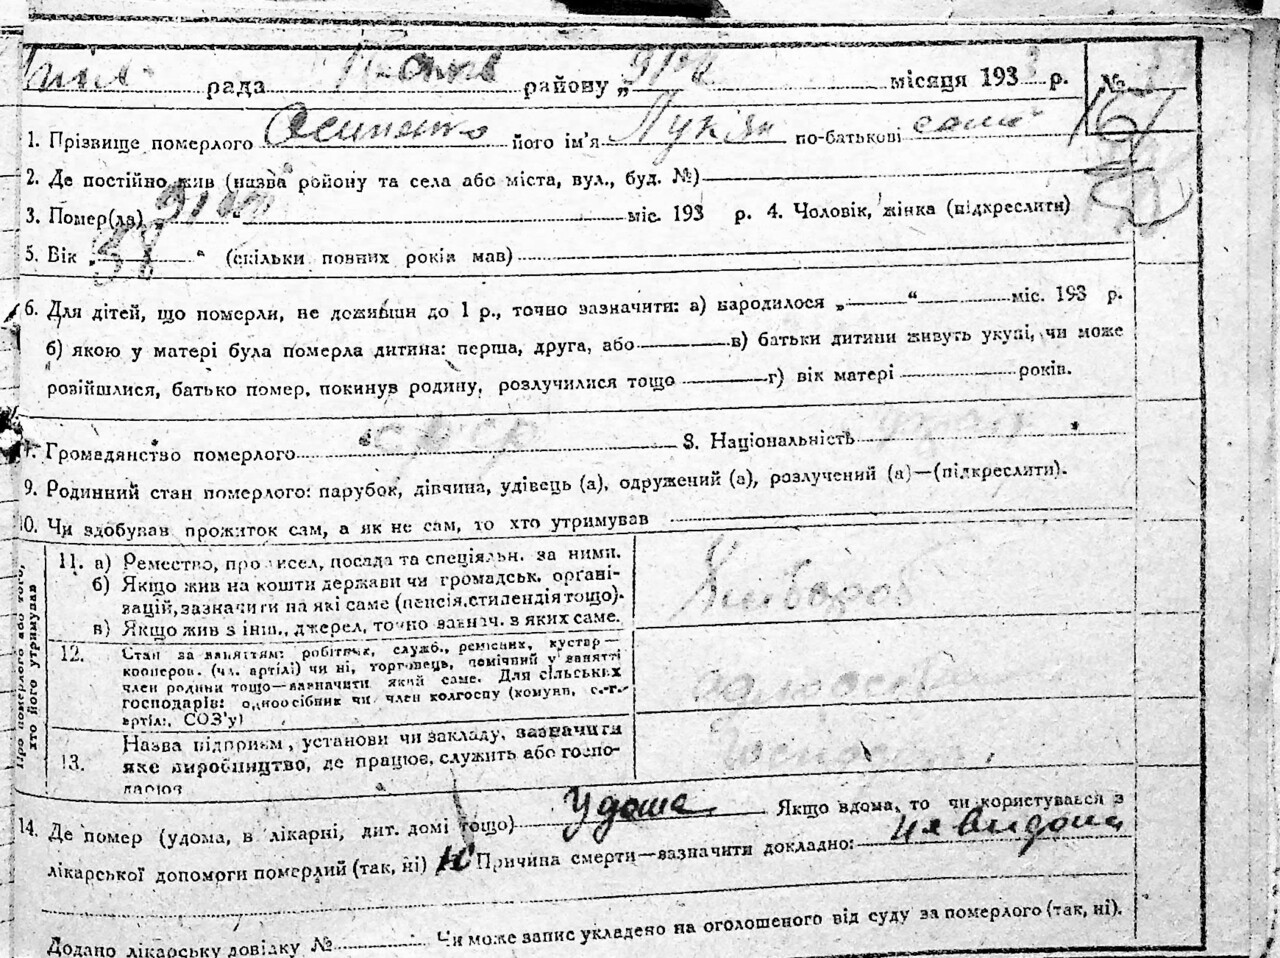 рада району „ місяця 193 3 р. №
1. Прізвище померлого Осипенко його ім'я Лукян по-батькові
2. Де постійно жив (назва району та села або міста, вул., буд. №)
3. Помер(ла) міс. 193 р. 4. Чоловік, жінка (підхреслити)
5. Вік „ 38 “ (скільки повних років мав)
6. Для дітей, що померли, не доживши до 1 р., точно зазначити: а) народилося „ “ міс. 193 р.
б) якою у матері була померла дитина: перша, друга, або в) батьки дитини живуть укупі, чи може
розійшлися, батько помер, покинув родину, розлучилися тощо г) вік матері років.
7. Громадянство померлого срср 8. Національність укр
9. Родинний стан померлого: парубок, дівчина, удівець (а), одружений (а), розлучений (а)—(підкреслити).
10. Чи здобував прожиток сам, а як не сам, то хто утримував
Про померлого або того, хто його утримував
11. а) Ремество, промисел, посада та спеціяльн. за ними.
б) Якщо жив на кошти держави чи громадськ. органі-
зацій, зазначити на які саме (пенсія, стипендія тощо).
в) Якщо жив з інш., джерел, точно зазнач. з яких саме.
Хлібороб
12. Стан за заняттям: робітник, служб., ремісник, кустар—
кооперов. (чл. артілі) чи ні, торговець, помічний у занятті
член родини тощо—зазначити який саме. Для сільських
господарів: одноосібник чи член колгоспу (комуни, с.-г.
артіл., СОЗ'у)
13. Назва підприєм, установи чи закладу, зазначити
яке виробництво, де працює, служить або госпо-
дарює
14. Де помер (удома, в лікарні, дит. домі тощо) Удома Якщо вдома, то чи користувався з
лікарської допомоги померлий (так, ні) Ні Причина смерти—зазначити докладно: невидома
Додано лікарську довідку № Чи може запис укладено на оголошеного від суду за померлого (так, ні).